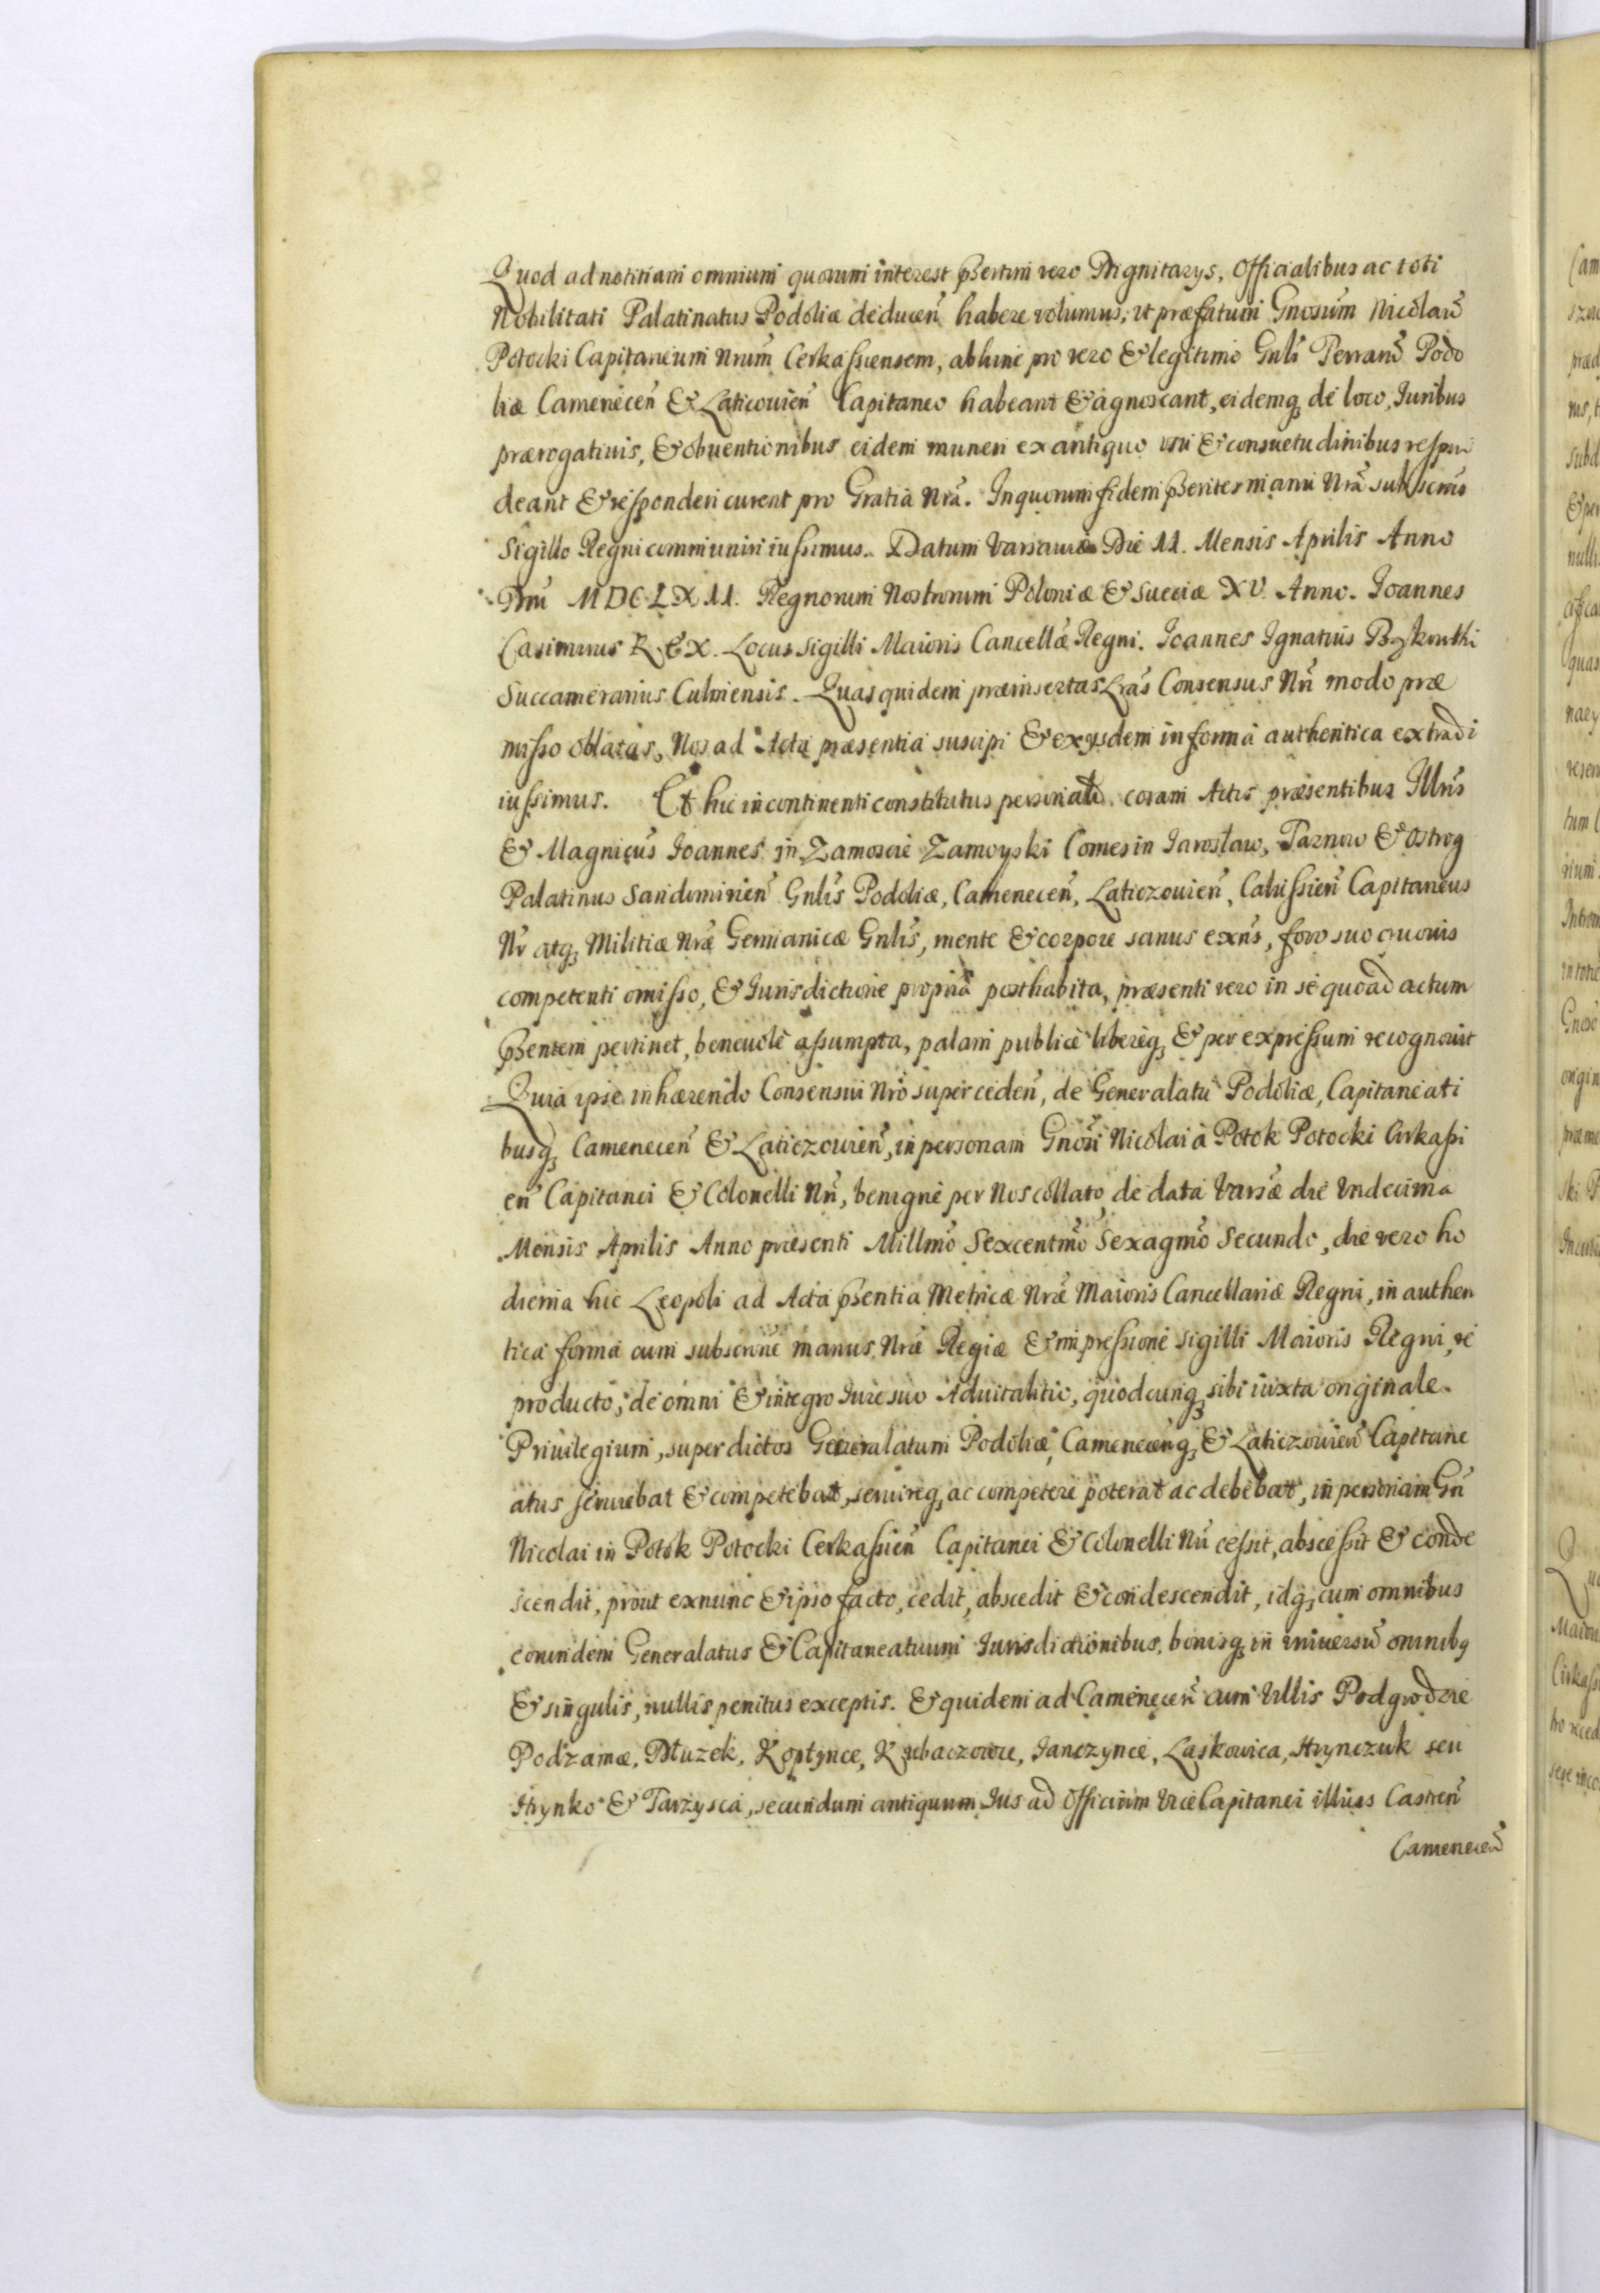 Quod ad notitiam omnium quorum interest pñsertim vero Dignitarys, Officialibus ac toti
Nobilitati Palatinatus Podoliæ deducen̄ habere volumus, ut præfatum Gnosum̄ Nicolau̅
Potocki Capitaneum Nrum̄ Cerkassiensem, abhinc pro vero & legitimo Gnl̄i Terraru̅ Podo
liæ Camenecen̄ & Laticouien̄ Capitaneo habeant & agnoscant, eidemq; de loco, Iuribus
prærogatiuis, & obuentionibus eidem muneri ex antiquo usu & consuetudinibus respon
deant & responderi curent pro Gratia Nrā. In quorum fidem pñsentes manu Nrā subscrīās
Sigillo Regni communiri iussimus. Datum Varsauiæ Die 11. Mensis Aprilis Anno
Dnī MDCLXII. Regnorum Nostrorum Poloniæ & Sueciæ XV. Anno. Ioannes
Casimirus REX. Locus Sigilli Maioris Cancellæ Regni. Ioannes Ignatius
Succamerarius Culmensis. Quas quidem præinsertas Lrās Consensus Nrī modo præ
misso oblatas, Nos ad Acta præsentia suscipi & ex ysdem in forma authentica extradi
iussimus. Et hic in continenti constitutus personalr̄ coram Actis præsentibus Illrīs
& Magnicūs Ioannes in Zamoscie Zamoyski Comes in Jarosław, Tarnow & Ostrog
Palatinus Sandomirien̄ Gnl̄is Podoliæ, Camenecen̄, Laticzouien̄, Calussien̄ Capitaneus
Nr̄ atq; Militiæ Nrǣ Germanicæ Gnl̄is, mente & corpore sanus exn̄s, foro suo quouis
competenti omisso, & Iurisdictione propria posthabita, præsenti vero in se quoad actum
pñsentem pertinet, beneuole assumpta, palam publice libereq; & per expressum recognouit
Quia ipse inhærendo Consensui Nrō super ceden̄, de Generalatu Podoliæ, Capitaneati
busq; Camenecen̄ & Laticzouien̄, in personam Gnosī Nicolai à Potok Potocki Cirkassi
en̄ Capitanei & Colonelli Nrī, benigne per Nos collato, de data Varsæ die Vndecima
Mensis Aprilis Anno præsenti Millmō Sexcentmō Sexagmō Secundo, die vero ho
dierna hic Leopoli ad Acta pñsentia Metricæ Nrǣ Maioris Cancellariæ Regni, in authen
tica forma cum subscrine manus Nrǣ Regiæ & impressione Sigilli Maioris Regni, re
producto, de omni & integro Iure suo Aduitalitio, quodcunq; sibi iuxta originale
Priuilegium, super dictos Generalatum Podoliæ, Camenecenq; & Laticzouien̄ Capitane
atus seruiebat & competebat, seruireq; ac competere poterat ac debebat, in personam Gn̄
Nicolai in Potok Potocki Cerkassien̄ Capitanei & Colonelli Nrī cessit, abscessit & conde
scendit, prout exnunc & ipso facto, cedit, abscedit & condescendit, idq; cum omnibus
eorundem Generalatus & Capitaneatuum Iurisdictionibus, bonisq; in vniuersu̅ omnibq
& singulis, nullis penitus exceptis. Et quidem ad Camenecen̄ cum Villis Podgrodzie
Podzamæ, Dłuzek, Koptynce, Kubaczowce, Janczynce, Laskowica, Hrynczuk seu
Hrynko & Tarzysca, secundum antiquum Ius ad Officium ViceCapitanei illius Castren̄
Camenecen̄